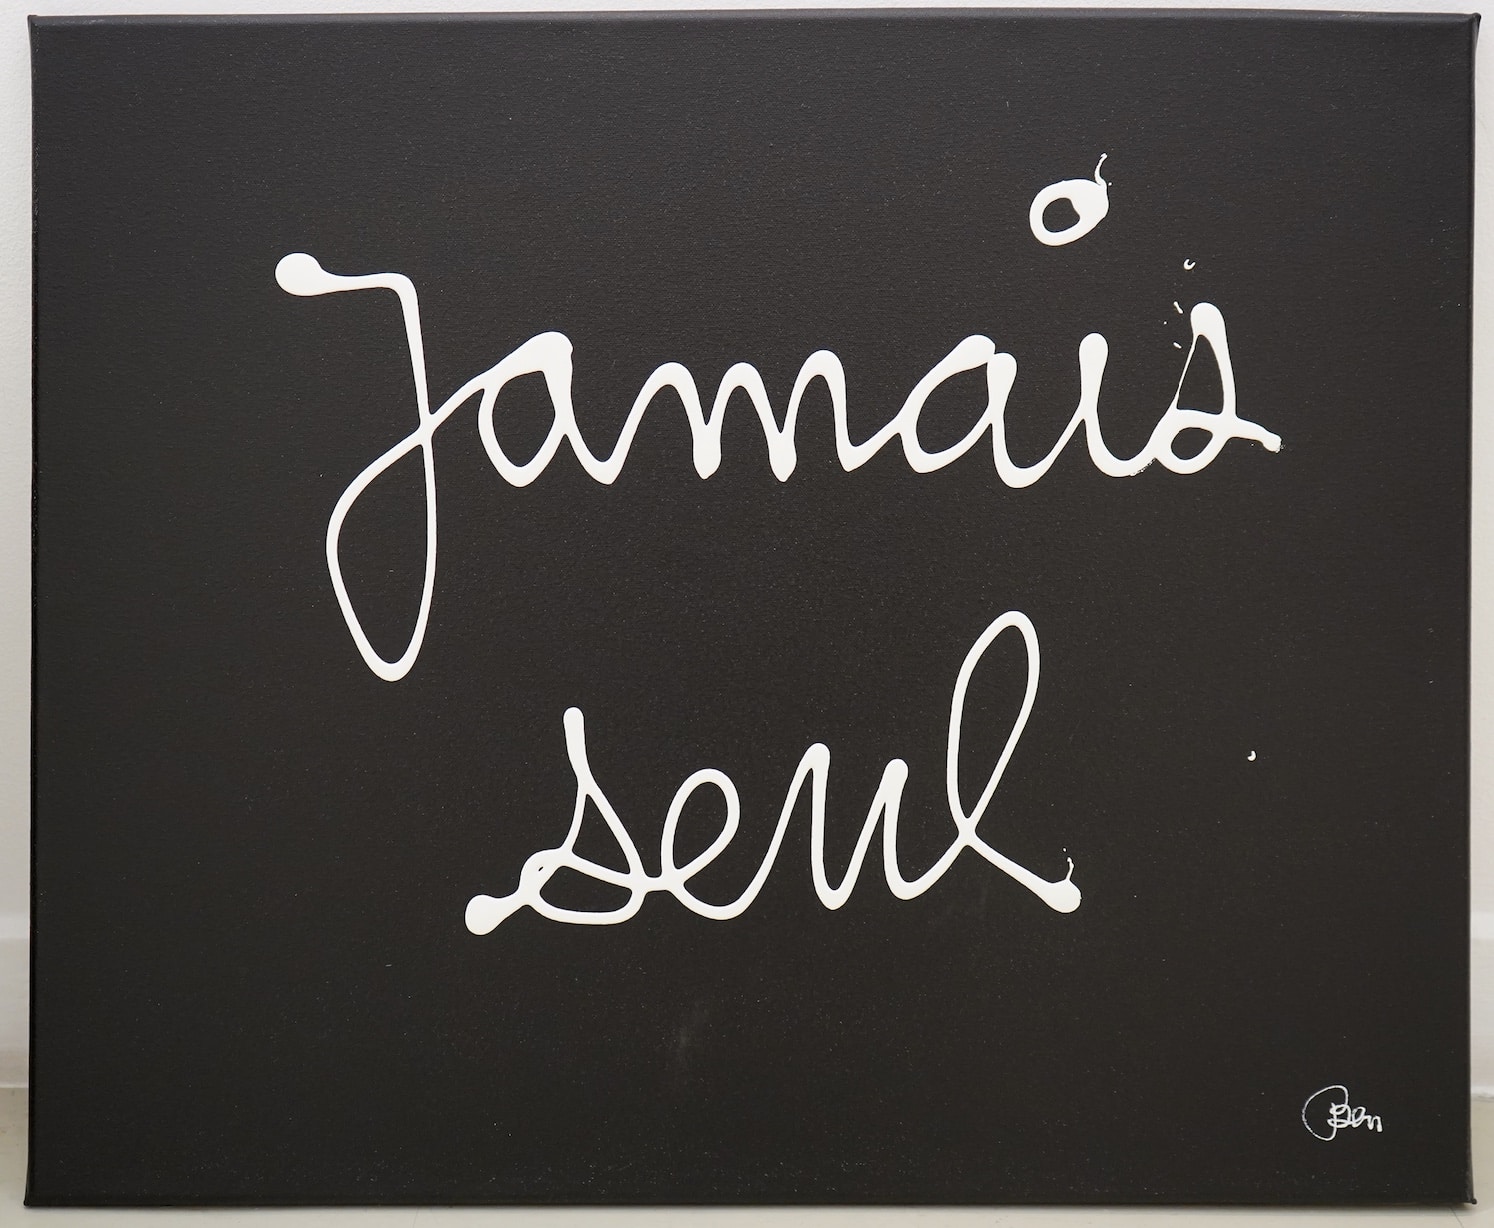 Jamais
seul
Ben